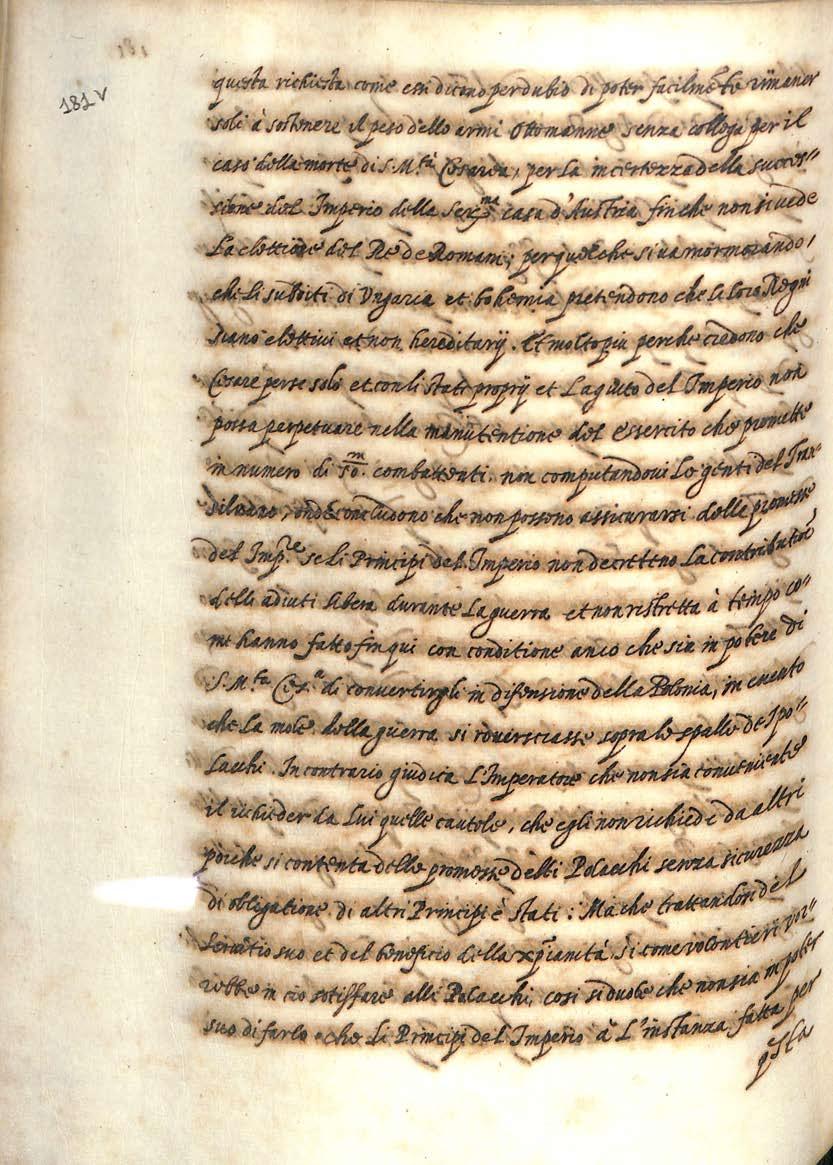 181
181 v
questa richiesta come essi dicono per dubio di poter facilmẽte rimaner
soli à sostenere il peso dello armi Ottomanne senza collega per il
caso della morte di S. M.tà Cesarea, per la incertezza della succes=
sione del Imperio della Ser.ma casa d'Austria fin che non si vede
La elettione del Re de Romani; per quel che si va mormorando,
che li subditi di Ungaria et bohemia pretendono che li loro Regni
siano elettivi et non hereditarij. Et molto piu perche credono che
Cesare per se solo et con li stati proprij et L'agiuto del Imperio non
possa perpetuare nella manutentione del essercito che promette
in numero di 50.m combattenti. non computandovi Le genti del Tran=
silvano, onde concludono che non possono assicurarsi delle promesse
del Imp.re se li Principi del Imperio non decretano La contributiõe
delli adiuti libera durante La guerra et non ristretta à tempo co=
me hanno fatto fin qui con conditione anco che sia in potere di
S. M.tà Ces.a di convertirgli in difensione della Polonia, in evento
che La mole della guerra si roversciasse sopra le spalle de i po=
lacchi. In contrario giudica L'Imperatore che non sia conveniente
il richieder da Lui quelle cautole, che egli non richiede da altri
poiche si contenta delle promesse delli Polacchi senza sicurezza
di obligatione di altri Principi è stati: Ma che trattandosi del
servitio suo et del beneficio della xp̃ianità si come volontieri vor=
rebbe in cio sotisfare alli Polacchi, cosi si duole che non sia in poter
suo di farlo che li Principi del Imperio à L'instanza fatta per
q̃sta